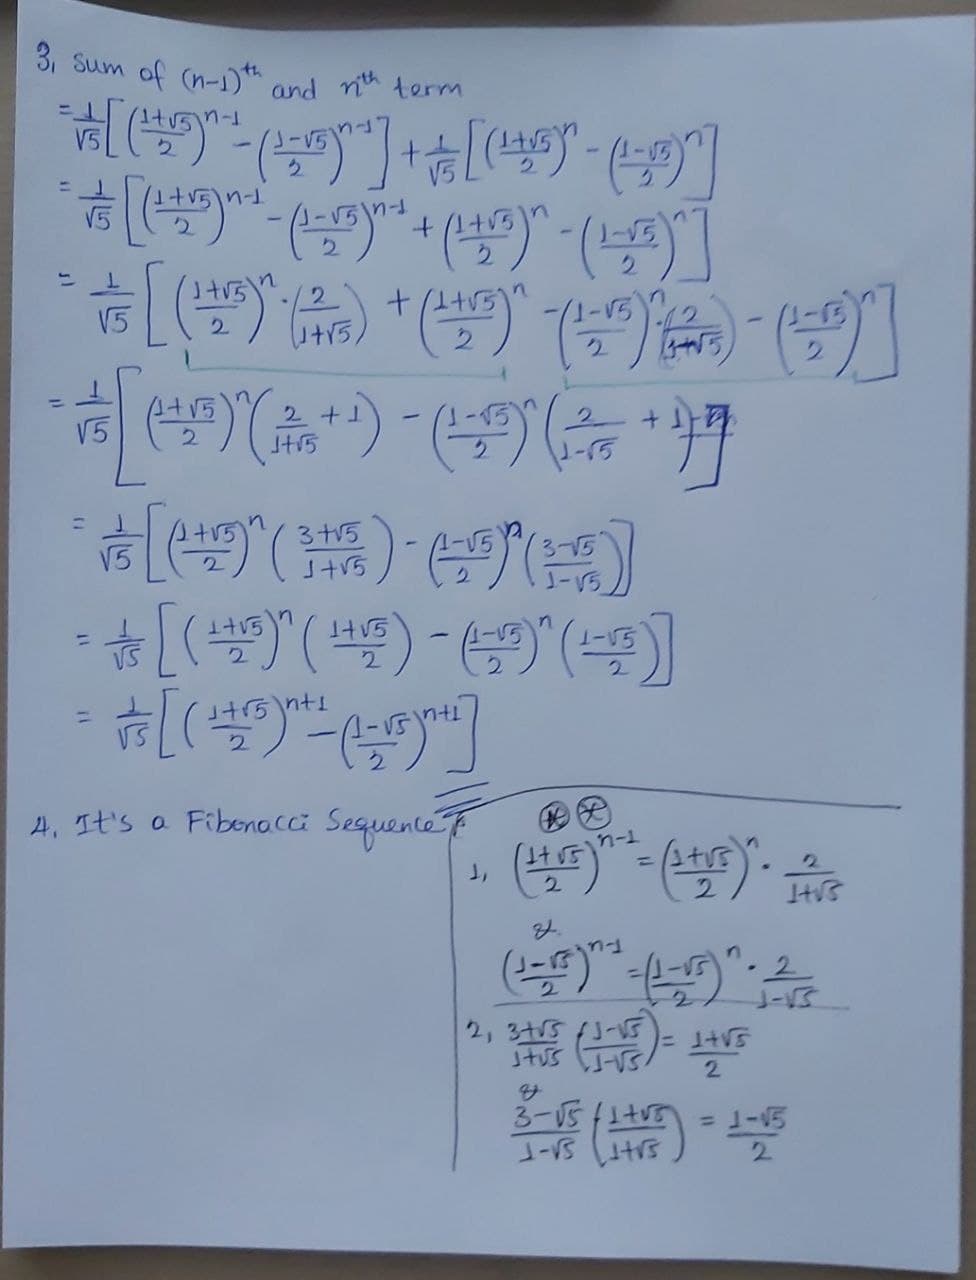 3, Sum of (n-1)ᵗʰ and nᵗʰ term
= 1/√5 [((1+√5)/2)ⁿ⁻¹ - ((1-√5)/2)ⁿ⁻¹] + 1/√5 [((1+√5)/2)ⁿ - ((1-√5)/2)ⁿ]
= 1/√5 [((1+√5)/2)ⁿ⁻¹ - ((1-√5)/2)ⁿ⁻¹ + ((1+√5)/2)ⁿ - ((1-√5)/2)ⁿ]
= 1/√5 [((1+√5)/2)ⁿ · (2/(1+√5)) + ((1+√5)/2)ⁿ - ((1-√5)/2)ⁿ · (2/()) - ((1-√5)/2)ⁿ]
= 1/√5 [((1+√5)/2)ⁿ (2/(1+√5) + 1) - ((1-√5)/2)ⁿ (2/(1-√5) + 1)]
= 1/√5 [((1+√5)/2)ⁿ ((3+√5)/(1+√5)) - ((1-√5)/2)ⁿ ((3-√5)/(1-√5))]
= 1/√5 [((1+√5)/2)ⁿ ((1+√5)/2) - ((1-√5)/2)ⁿ ((1-√5)/2)]
= 1/√5 [((1+√5)/2)ⁿ⁺¹ - ((1-√5)/2)ⁿ⁺¹]
4. It's a Fibonacci Sequence
⊛ ⊛
1, ((1+√5)/2)ⁿ⁻¹ = ((1+√5)/2)ⁿ · 2/(1+√5)
&
((1-√5)/2)ⁿ⁻¹ = ((1-√5)/2)ⁿ · 2/(1-√5)
2, (3+√5)/(1+√5) ((1-√5)/(1-√5)) = (1+√5)/2
&
(3-√5)/(1-√5) ((1+√5)/(1+√5)) = (1-√5)/2